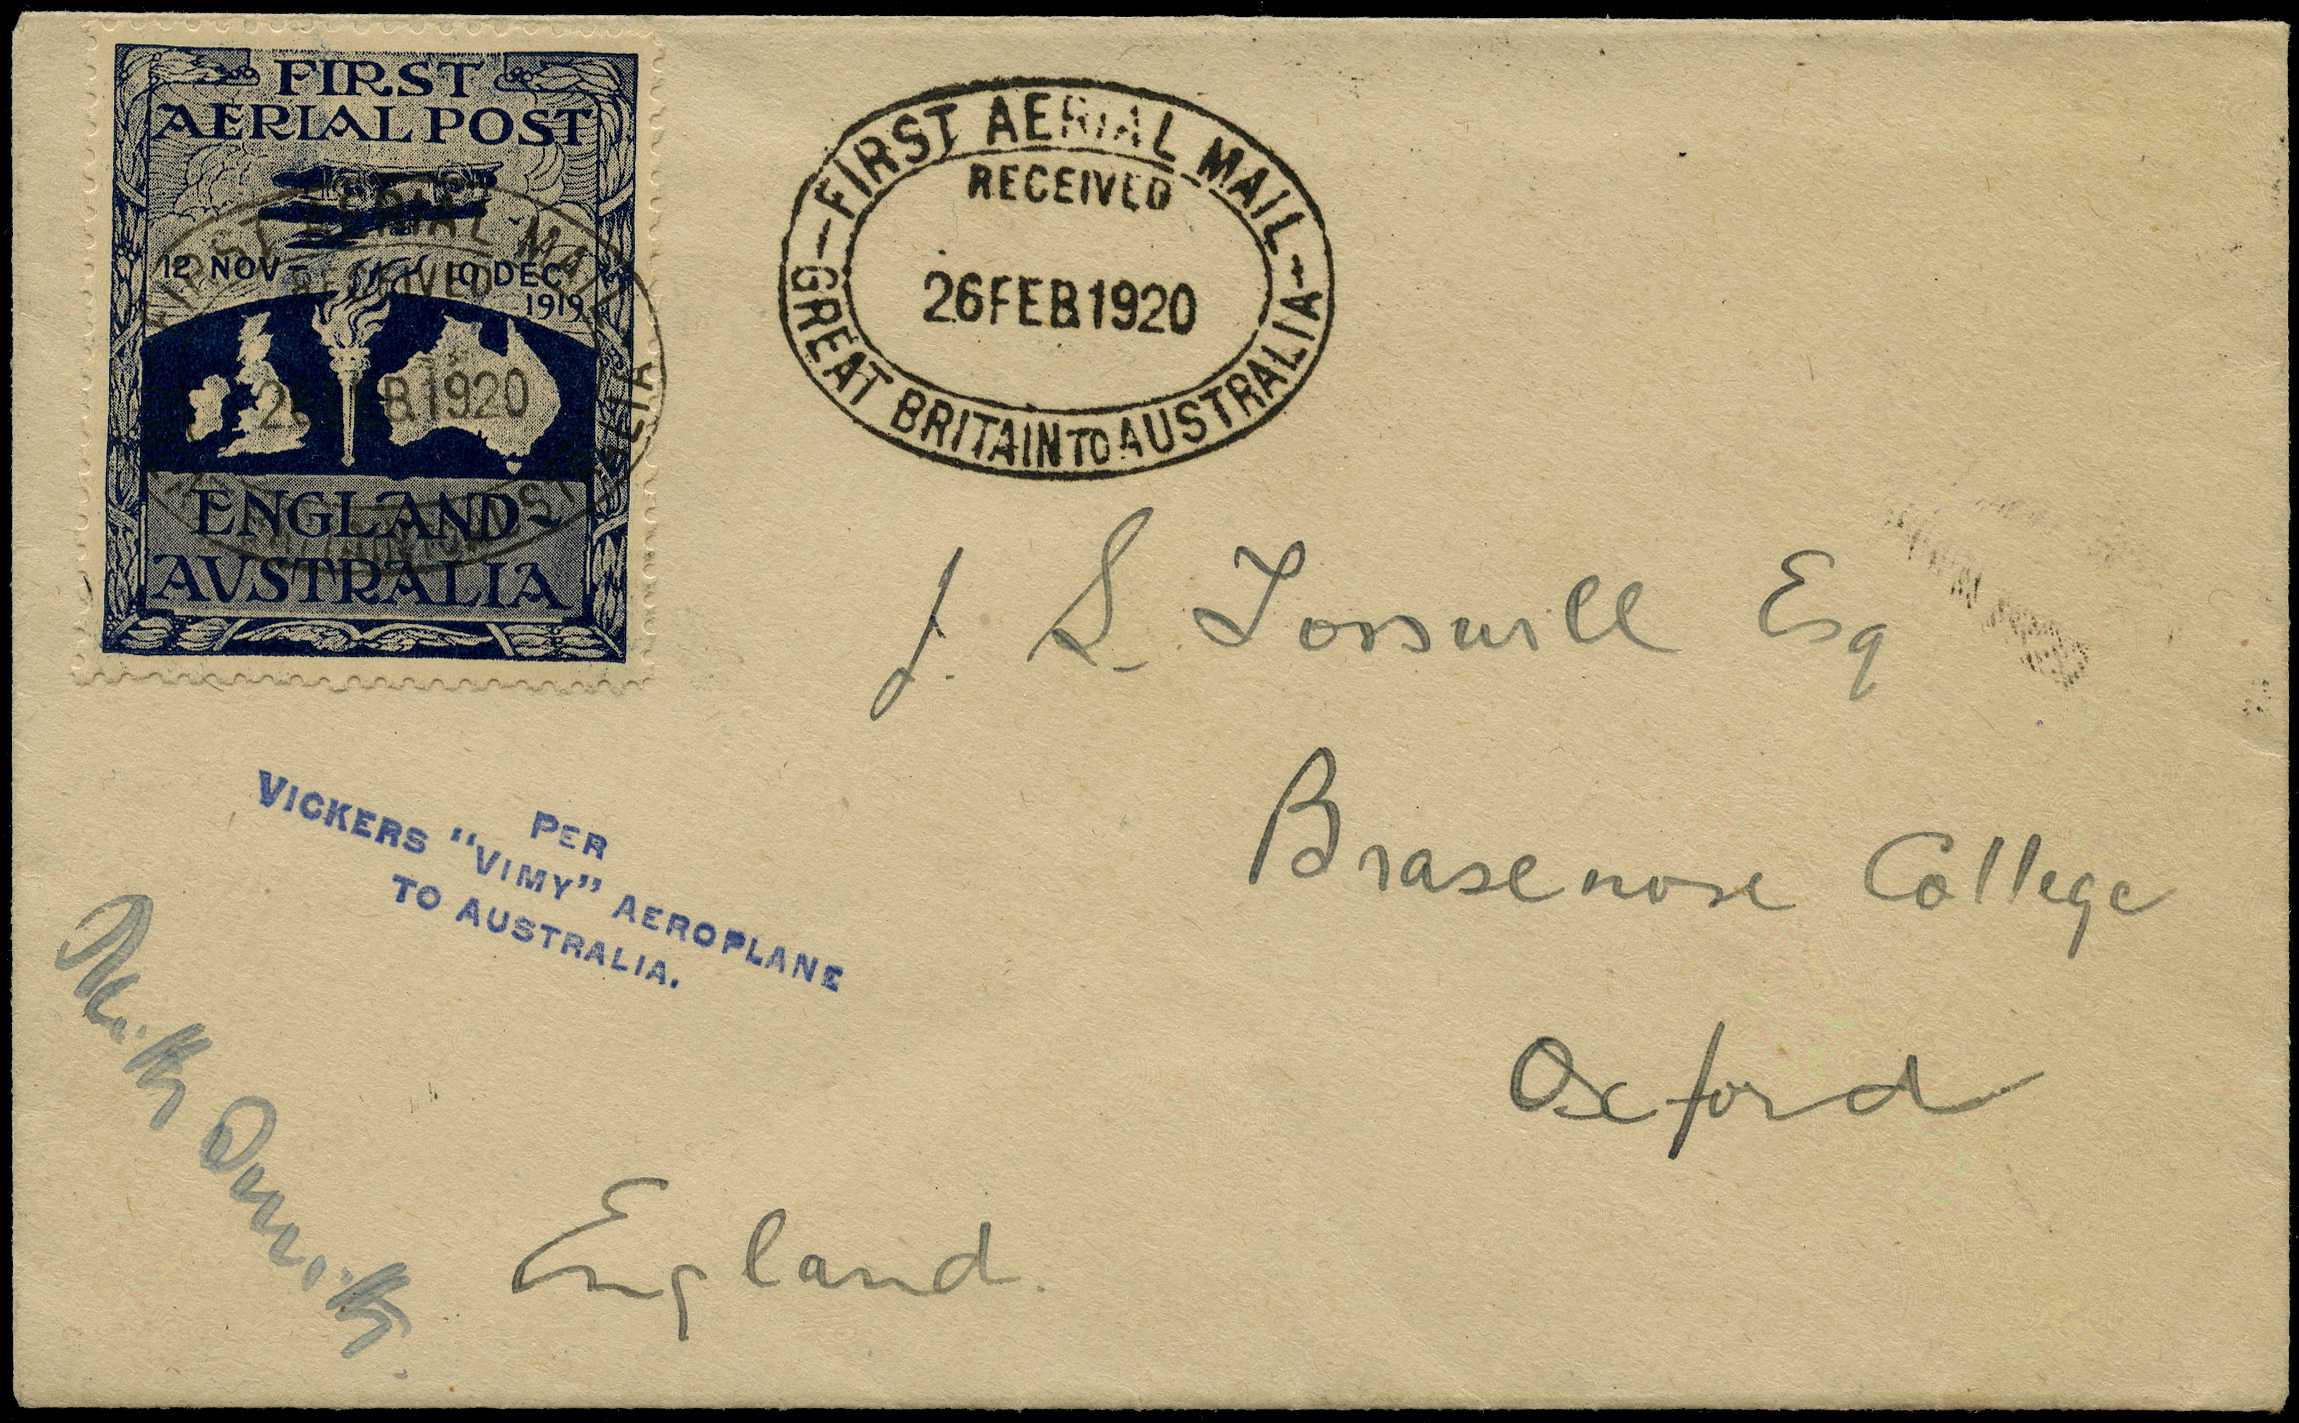 FIRST
AERIAL POST
12 NOV - 10 DEC
1919
ENGLAND-
AVSTRALIA
FIRST AERIAL MAIL
RECEIVED
26 FEB 1920
GREAT BRITAIN TO AUSTRALIA
FIRST AERIAL MAIL
RECEIVED
26 FEB 1920
GREAT BRITAIN TO AUSTRALIA
J. S. Tosswill Esq
Brasenose College
Oxford
England.
PER
VICKERS "VIMY" AEROPLANE
TO AUSTRALIA.